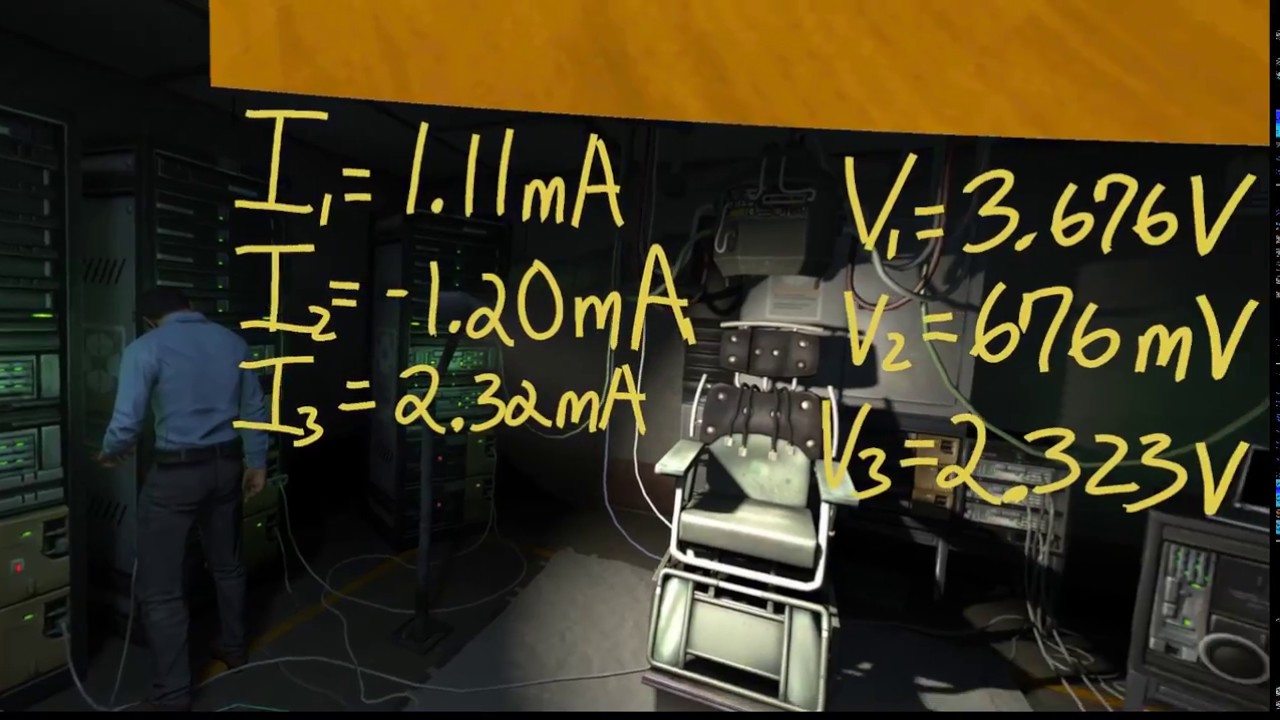 I₁ = 1.11mA
I₂ = -1.20mA
I₃ = 2.32mA
V₁ = 3.676V
V₂ = 676mV
V₃ = 2.323V